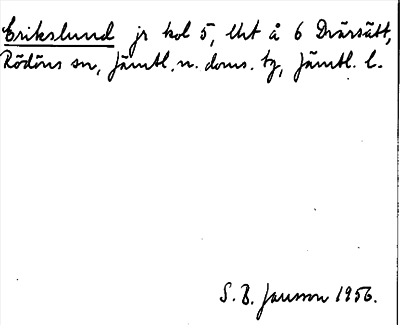 Erikslund jr kol 5, Utrt å 6 Dvärsätt,
Rödöns sn, Jämtl. n. doms. tg, Jämtl. l.
S. B. Jansson 1956.